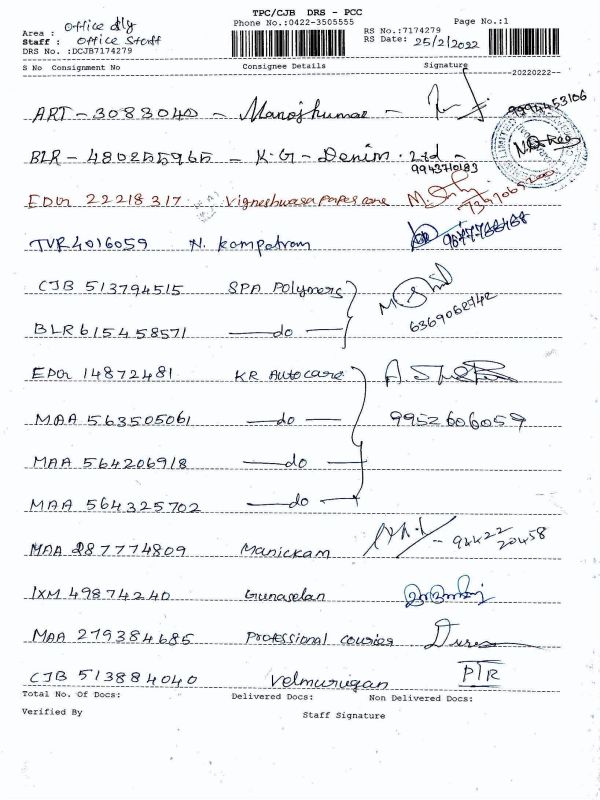 TPC/CJB DRS - PCC
Area : Office dly Phone No.:0422-3505555 Page No.:1
Staff : Office Staff RS No.:7174279
DRS No. :DCJB7174279 RS Date: 25/2/2022
S No Consignment No Consignee Details Signature
--20220222--
ART - 3083040 - Manojkumar - 9994453106
BLR - 480255965 - K.G - Denim. Ltd - 9943710183
EDR 22218317 Vigneshwasa paper cone
TVR 4016059 N. Kampatram
CJB 513794515 SPA Polymers
BLR 615458571 — do — 6369062742
EDR 14872481 KR Autocare
MAA 563505061 — do — 9952606059
MAA 564206918 — do —
MAA 564325702 — do —
MAA 287774809 Manickam - 94422 20458
IXM 49874240 Gunaselan
MAA 279384685 Professional courier
CJB 513884040 Velmurugan PTR
Total No. Of Docs: Delivered Docs: Non Delivered Docs:
Verified By Staff Signature